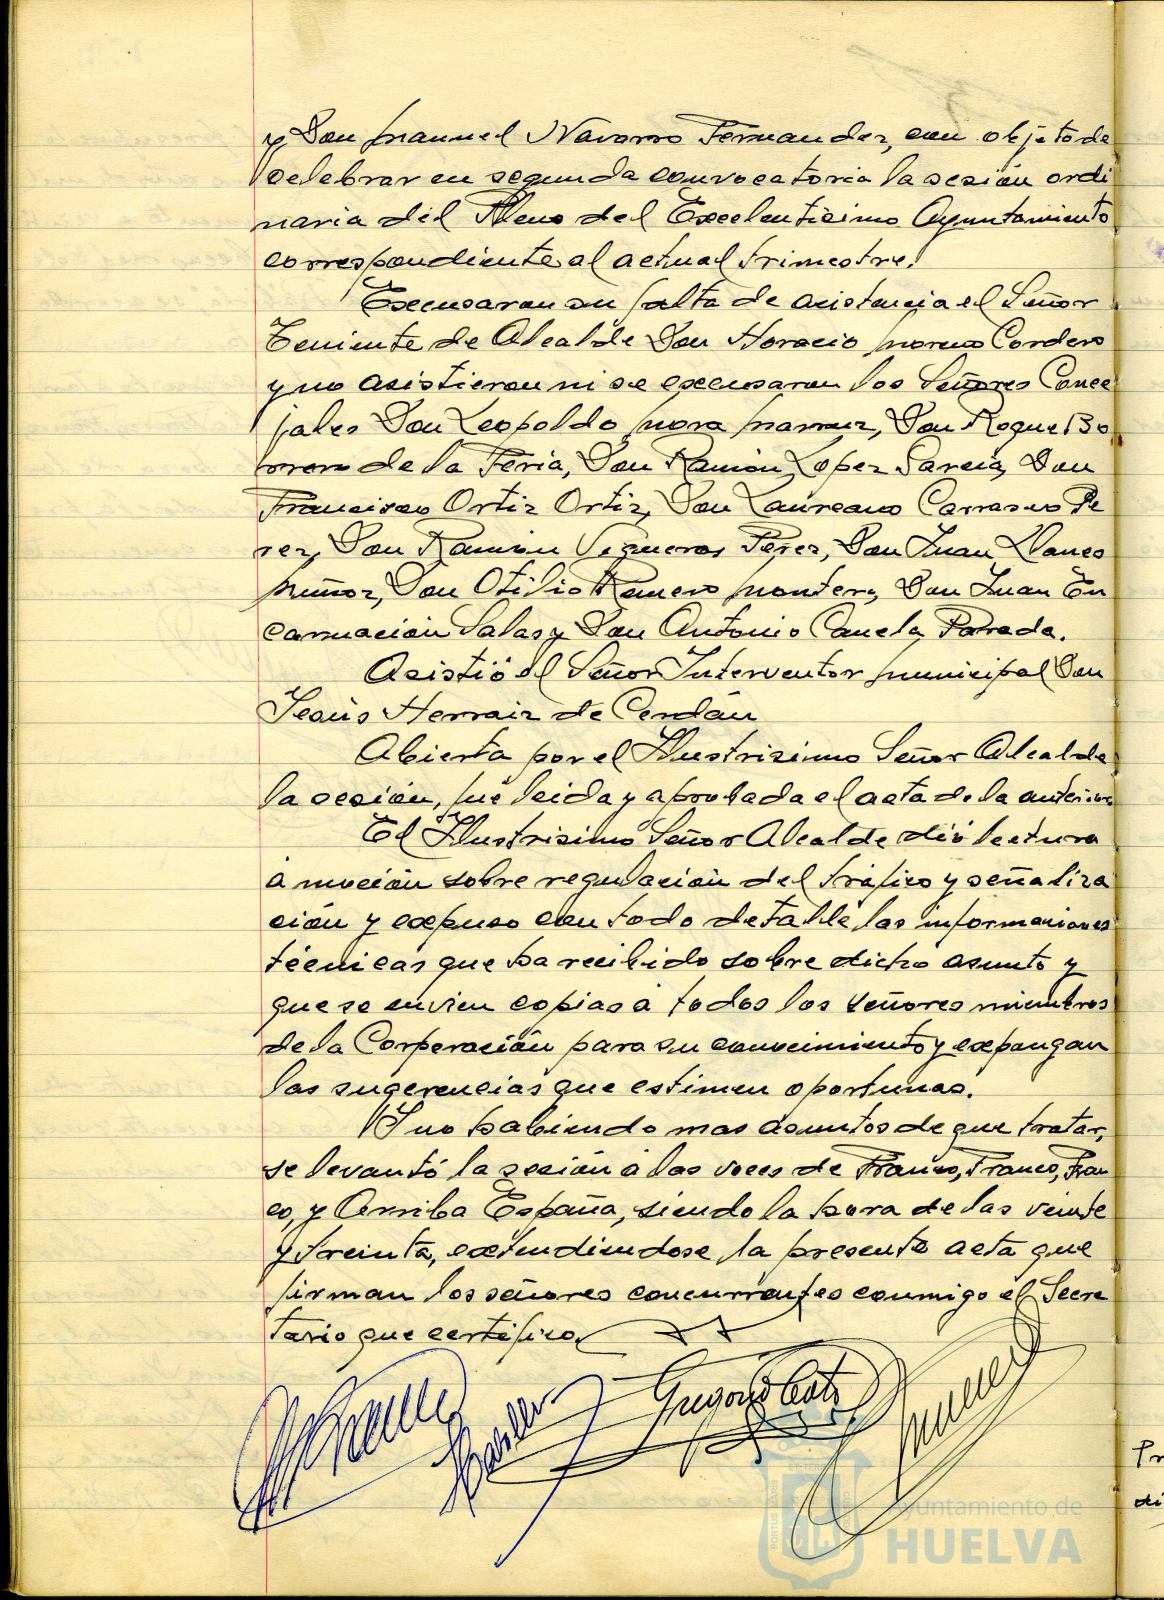 y Don Manuel Navarro Fernandez, con objeto de
celebrar en segunda convocatoria la sesión ordi
naria del Pleno del Excelentísimo Ayuntamiento
correspondiente al actual trimestre.
Excusaron su falta de asistencia el Señor
Teniente de Alcalde Don Horacio Moreno Cordero
y no asistieron ni se excusaron los Señores Conce
jales Don Leopoldo Mora Don Roque Bo
rrero de la Feria, Don Ramón Lopez Garcia, Don
Francisco Ortiz Ortiz, Don Laureano Carrasco Pe
rez, Don Ramón Vigueras Pérez, Don Juan Llanes
Muñoz, Don Otilio Romero Montero, Don Juan En
carnación Salas y Don Antonio Canela Parrada.
Asistió el Señor Interventor Municipal Don
Jesús Herraiz de Cerdán
Abierta por el Ilustrisimo Señor Alcalde
la sesión, fué leida y aprobada el acta de la anterior
El Ilustrisimo Señor Alcalde dió lectura
a moción sobre regulación del tráfico y señaliza
ción y expuso con todo detalle las informaciones
técnicas que ha recibido sobre dicho asunto y
que se envien copias a todos los señores miembros
de la Corporación para su conocimiento y expongan
las sugerencias que estimen oportunas.
Y no habiendo mas asuntos de que tratar,
se levantó la sesión a las voces de Franco, Franco, Fran
co, y Arriba España, siendo la hora de las veinte
y treinta, extendiendose la presente acta que
firman los señores concurrentes conmigo el Secre
tario que certifico
Gregorio
Ayuntamiento de
HUELVA
Pr
di